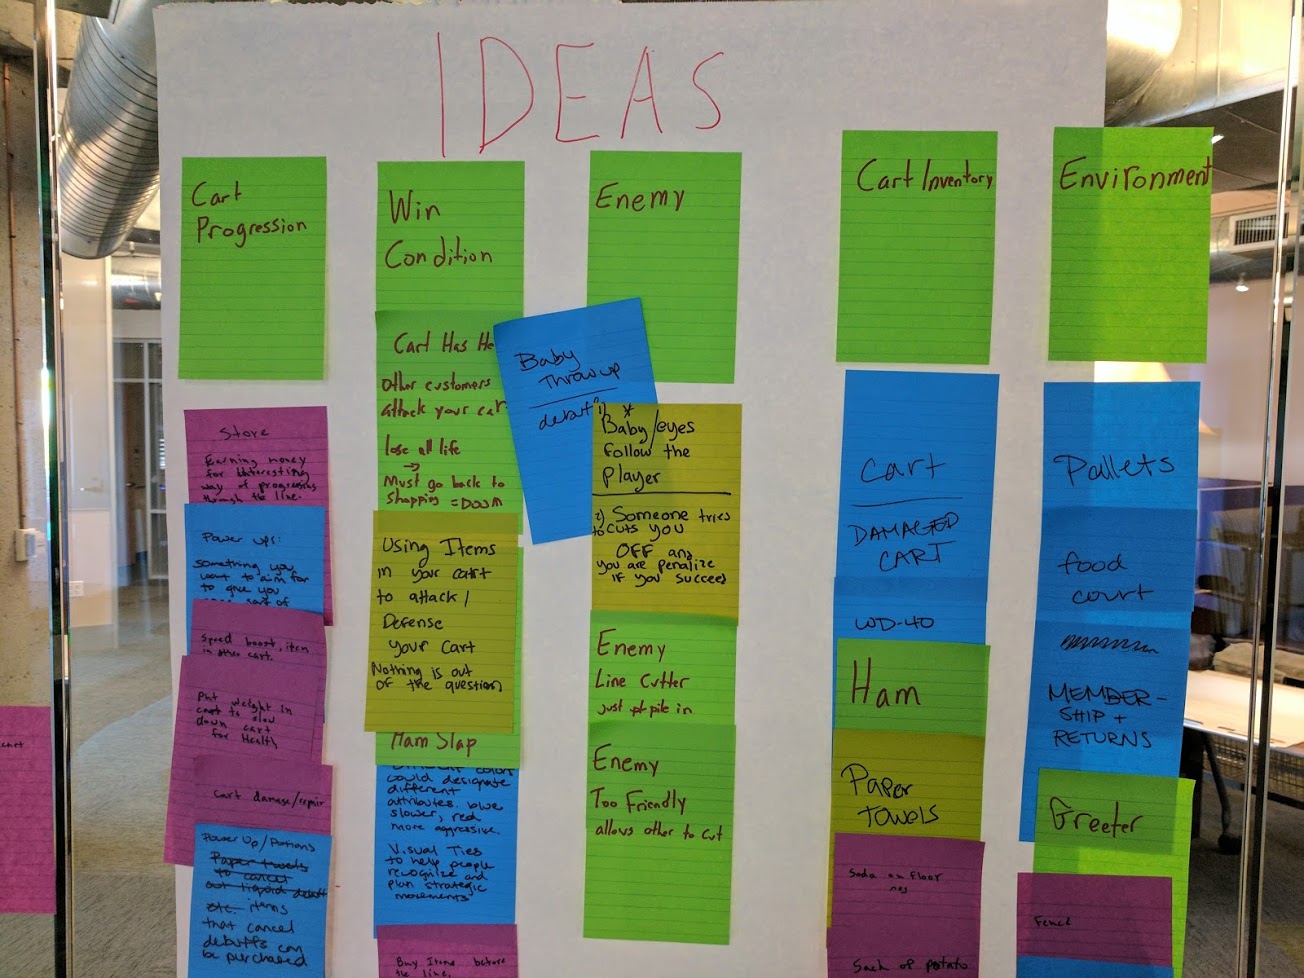 IDEAS
Cart
Progression
Store
Earning money
for interesting
way of progressing
through the line.
Power ups:
something you
want to aim for
to give you
sort of
Speed boost, item
in other cart.
Put weight in
cart to slow
down cart
for Health
Cart damage/repair
Power Up/Potions
Paper towels
to cancel
out liquid debuff
etc. items
that cancel
debuffs can
be purchased
Win
Condition
Cart Has He
Other customers
attack your car
lose all life
→
Must go back to
shopping = DOOM
Using Items
in your cart
to attack/
Defense
your Cart
Nothing is out
of the question
Ham Slap
could designate
different
attributes. blue
slower, red
more aggressive.
Visual Ties
to help people
recognize and
plan strategic
movements
Buy Items before
the line.
Enemy
Baby
Throwup
debuff
1) *
Baby/eyes
follow the
player
2) Someone tries
to cuts you
OFF and
you are penalize
if you succeed
Enemy
Line Cutter
just pile in
Enemy
Too Friendly
allows other to cut
Cart Inventory
Cart
DAMAGED
CART
WD-40
Ham
Paper
TOWELS
Soda on Floor
Sack of potato
Environment
Pallets
food
court
MEMBER-
SHIP +
RETURNS
Greeter
cart